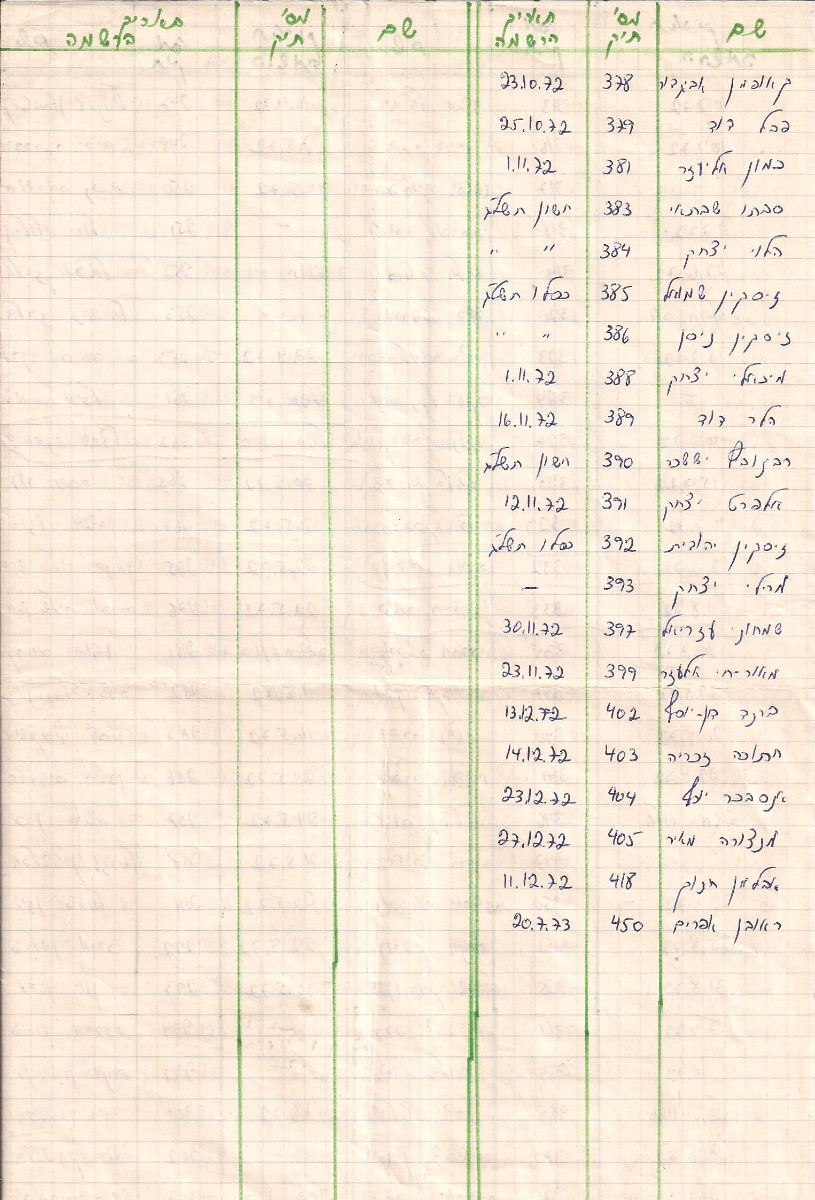 שם מס' תיק תאריך הרשמה שם מס' תיק תאריך הרשמה
קאופמן אביגדור 378 23.10.72
פבל דוד 379 25.10.72
כמון אליעזר 381 1.11.72
סבתו שבתאי 383 חשון תשל"ג
הלוי יצחק 384 " "
זיסקין שמואל 385 כסלו תשל"ג
זיסקין ניסן 386 " "
מיכאלי יצחק 388 1.11.72
הלר דוד 389 16.11.72
רבינוביץ יששכר 390 חשון תשל"ג
אלפרט יצחק 391 12.11.72
זיסקין יהודית 392 כסלו תשל"ג
יצחק 393 —
שמחוני עזריאל 397 30.11.72
מאור-חי אלעזר 399 23.11.72
ברנד בן-יוסף 402 13.12.72
חתוכה זכריה 403 14.12.72
אנסבכר 404 23.12.72
מנצורה מאיר 405 27.12.72
חנוך 418 11.12.72
ראובן אפרים 450 20.7.73